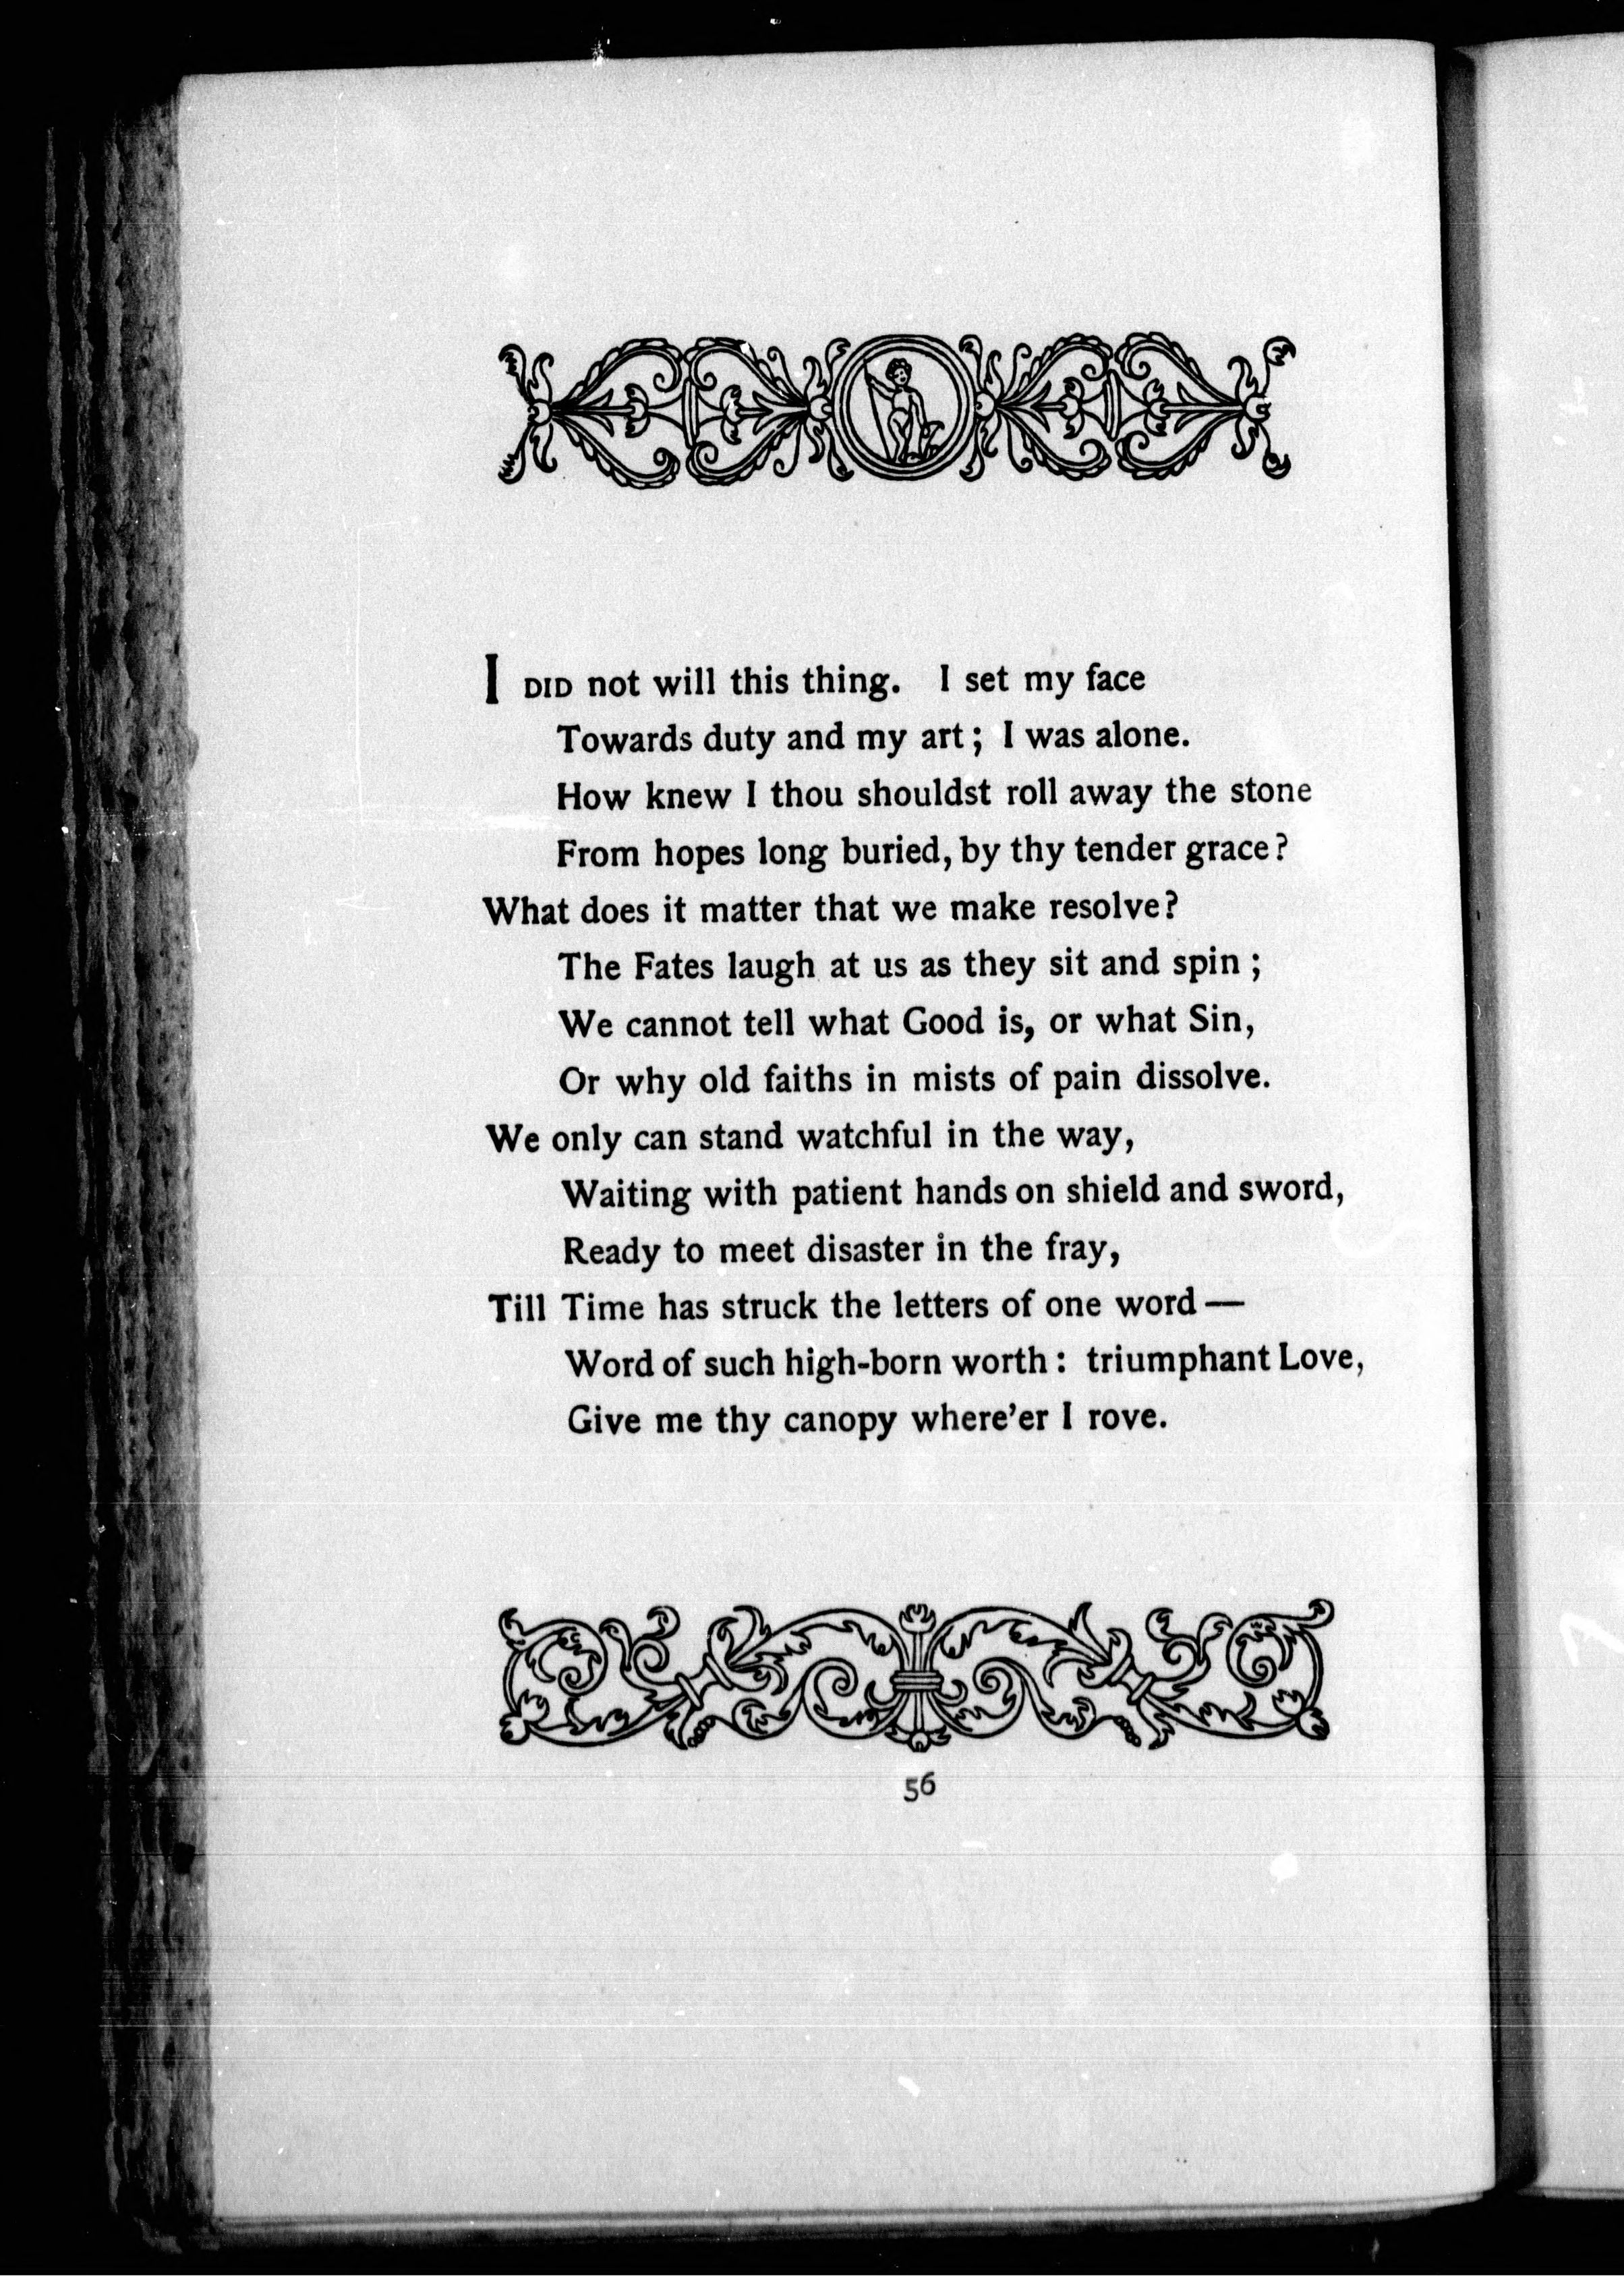 I DID not will this thing. I set my face
Towards duty and my art; I was alone.
How knew I thou shouldst roll away the stone
From hopes long buried, by thy tender grace?
What does it matter that we make resolve?
The Fates laugh at us as they sit and spin;
We cannot tell what Good is, or what Sin,
Or why old faiths in mists of pain dissolve.
We only can stand watchful in the way,
Waiting with patient hands on shield and sword,
Ready to meet disaster in the fray,
Till Time has struck the letters of one word—
Word of such high-born worth: triumphant Love,
Give me thy canopy where'er I rove.
56